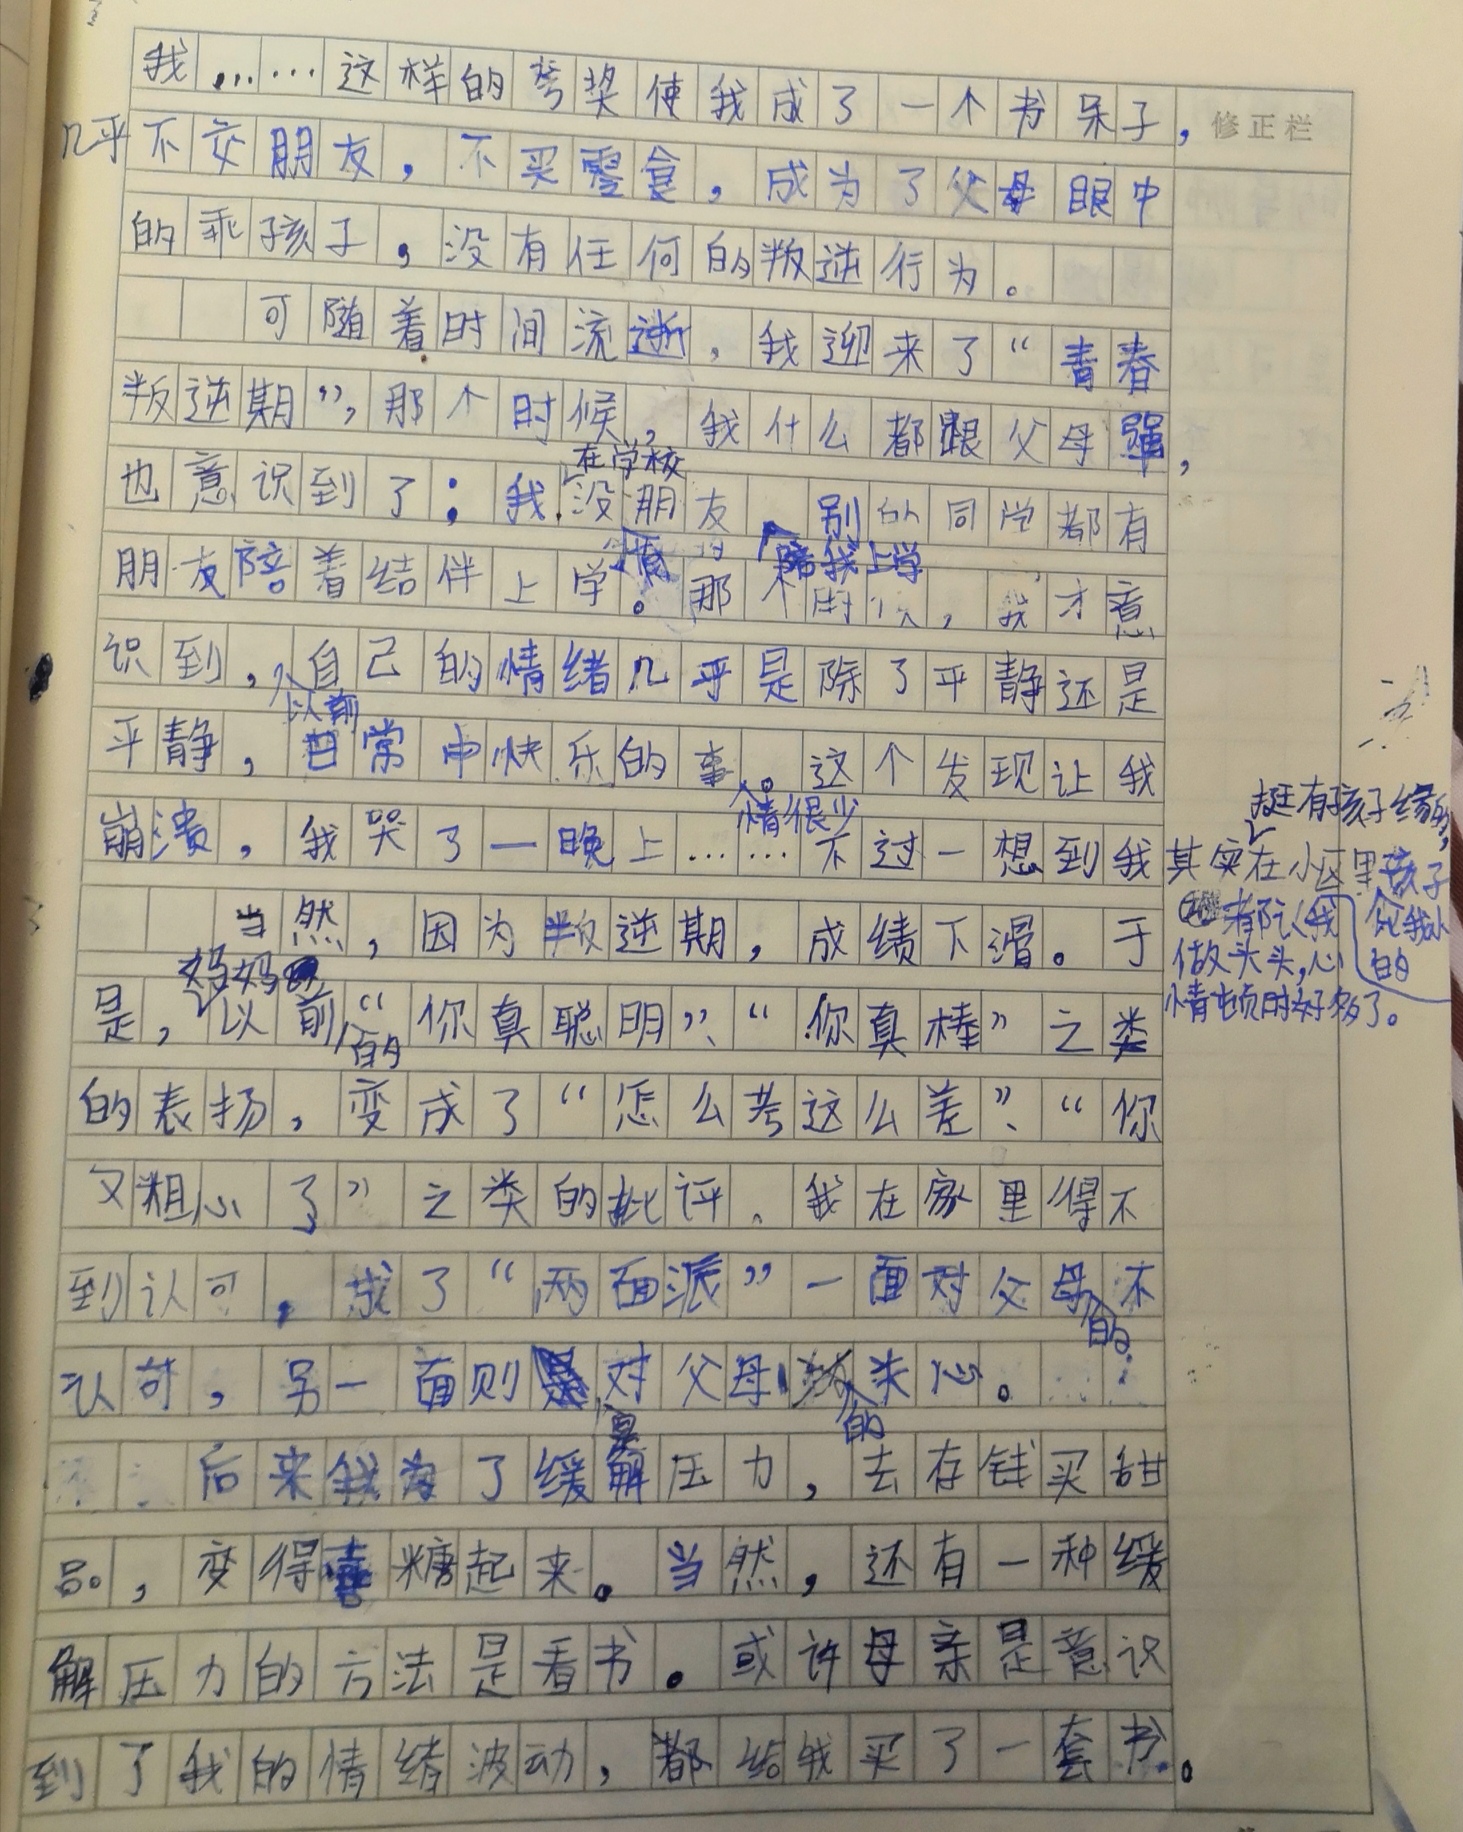 我……这样的夸奖使我成了一个书呆子，
修正栏
几乎不交朋友，不买零食，成为了父母眼中
的乖孩子，没有任何的叛逆行为。
可随着时间流逝，我迎来了“青春
叛逆期”，那个时候，我什么都跟父母犟，
在学校
也意识到了：我没朋友，别的同学都有
陪我上学
朋友陪着结伴上学。那个时候，我才意
识到，自己的情绪几乎是除了平静还是
以前
平静，日常中快乐的事。这个发现让我
情很少
挺有孩子缘的，
崩溃，我哭了一晚上……不过一想到我其实在小区里孩子
都认我
做头头，心
情也顿时好多了。
当然，因为叛逆期，成绩下滑。于
妈妈
是，以前“你真聪明”、“你真棒”之类
的
的表扬，变成了“怎么考这么差”、“你
又粗心了”之类的批评、我在家里得不
到认可，成了“两面派”一面对父母不
的
认可，另一面则对父母失心。
是
的
后来我为了缓解压力，去存钱买甜
品，变得喜糖起来。当然，还有一种缓
解压力的方法是看书。或许母亲是意识
到了我的情绪波动，都给我买了一套书。